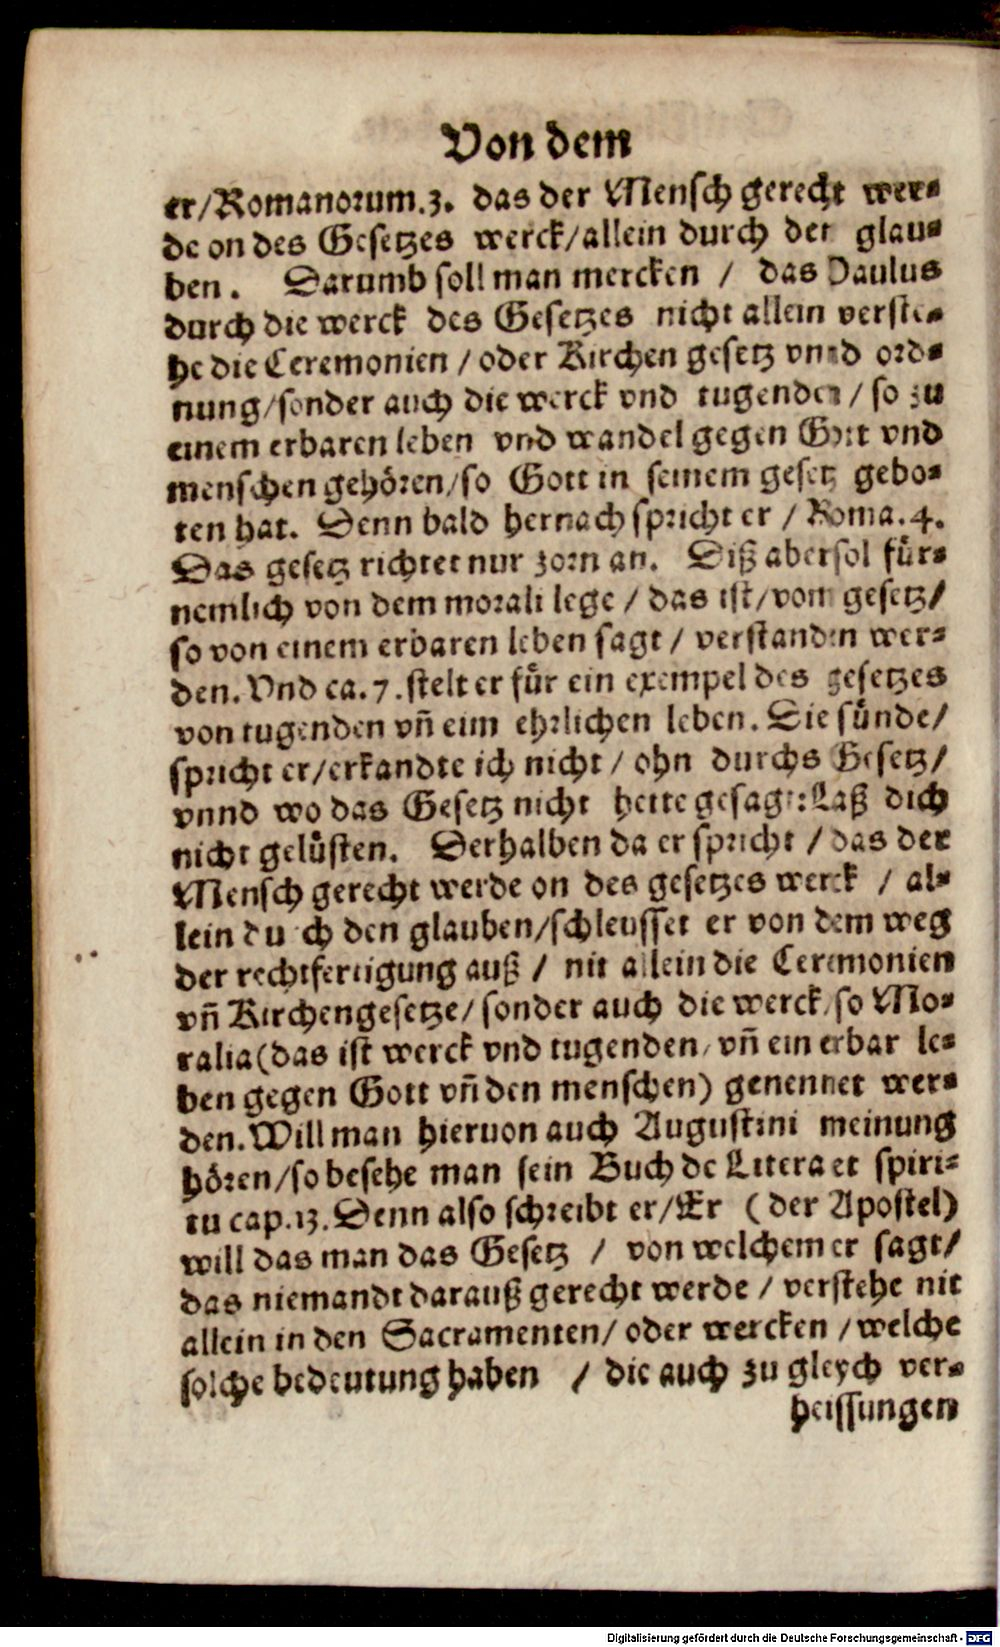 Von dem
er/Romanorum.3. das der Mensch gerecht wer⸗
de on des Gesetzes werck/allein durch der glau⸗
ben. Darumb soll man mercken / das Paulus
durch die werck des Gesetzes nicht allein verste⸗
he die Ceremonien / oder Kirchen gesetz vnnd ord⸗
nung/sonder auch die werck vnd tugenden / so zu
einem erbaren leben vnd wandel gegen Gott vnd
menschen gehören/so Gott in seinem gesetz gebo⸗
ten hat. Denn bald hernach spricht er / Roma.4.
Das gesetz richtet nur zorn an. Diß aber sol für⸗
nemlich von dem morali lege / das ist/vom gesetz/
so von einem erbaren leben sagt / verstanden wer⸗
den. Vnd ca.7. stelt er für ein exempel des gesetzes
von tugenden vñ eim ehrlichen leben. Die sünde/
spricht er/erkandte ich nicht / ohn durchs Gesetz/
vnnd wo das Gesetz nicht hette gesagt: Laß dich
nicht gelüsten. Derhalben da er spricht / das der
Mensch gerecht werde on des gesetzes werck / al⸗
lein durch den glauben/schleusset er von dem weg
der rechtfertigung auß / nit allein die Ceremonien
vñ Kirchengesetze/ sonder auch die werck/so Mo⸗
ralia(das ist werck vnd tugenden/ vñ ein erbar le⸗
ben gegen Gott vñ den menschen) genennet wer⸗
den. Will man hieruon auch Augustini meinung
hören/so besehe man sein Buch de Litera et spiri⸗
tu cap.13. Denn also schreibt er/Er (der Apostel)
will das man das Gesetz / von welchem er sagt/
das niemandt darauß gerecht werde / verstehe nit
allein in den Sacramenten/ oder wercken /welche
solche bedeutung haben / die auch zu gleych ver⸗
heissungen
Digitalisierung gefördert durch die Deutsche Forschungsgemeinschaft - DFG